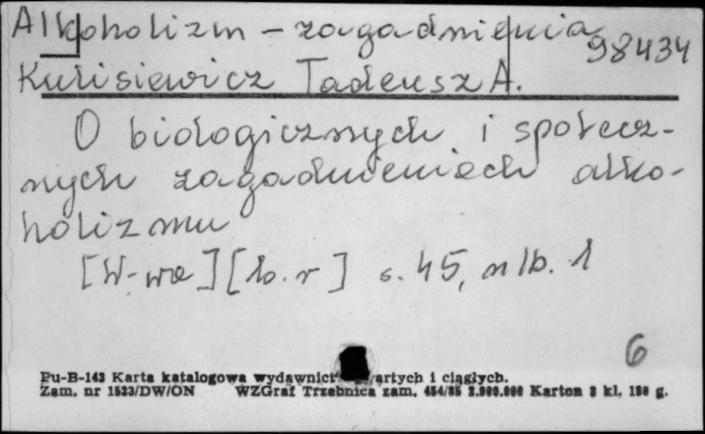 Alkoholizm - zagadnienia
98434
Kulisiewicz Tadeusz A.
O biologicznych i społecz-
nych zagadnieniach alko-
holizmu
[W-wa] [b.r] s. 45, nlb. 1
6
Pu-B-143 Karta katalogowa wydawnict artych i ciągłych.
Zam. nr 1523/DW/ON WZGraf Trzebnica zam. 454/85 2.000.000 Karton 3 kl. 180 g.